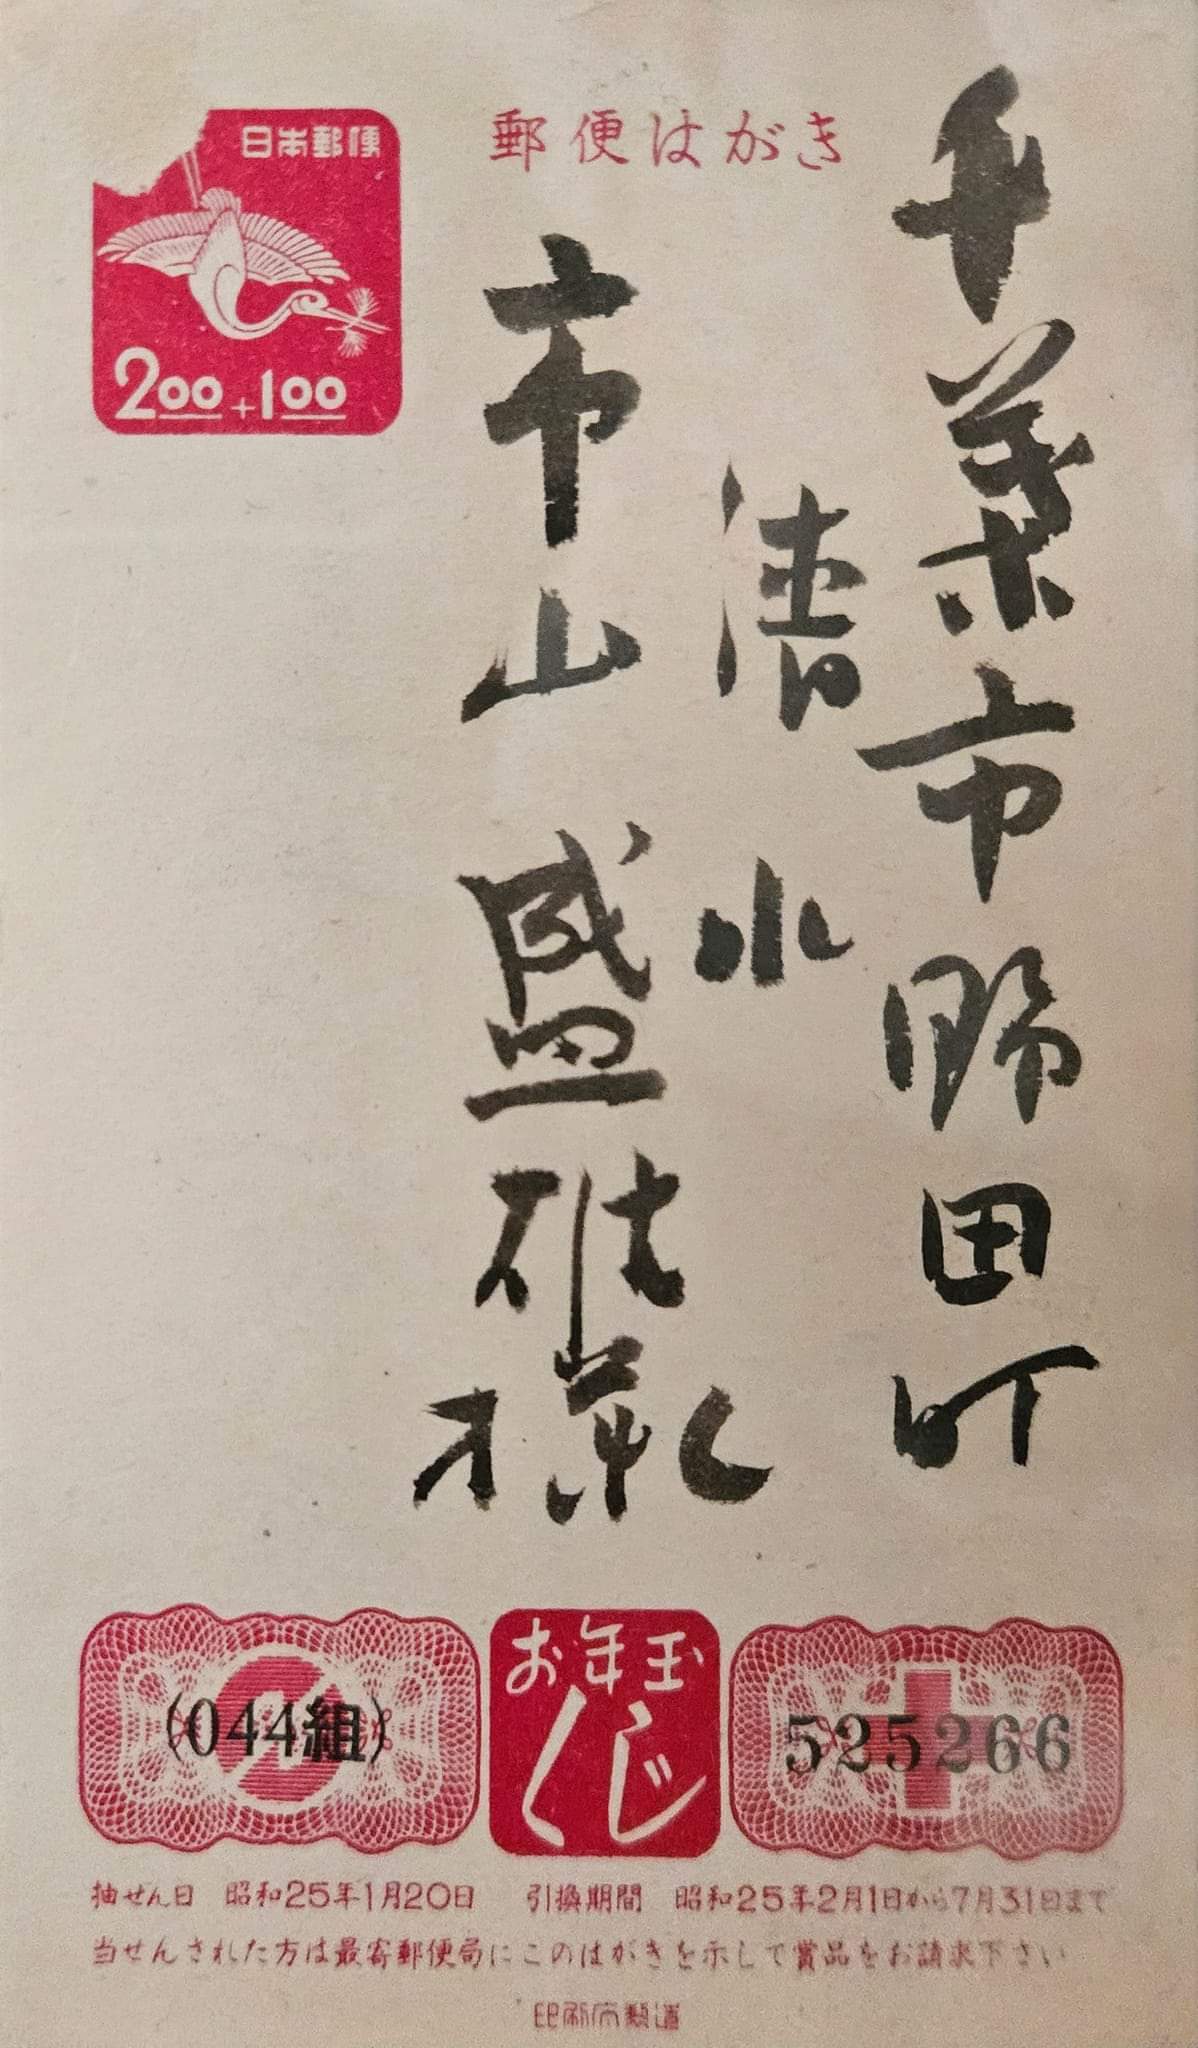 日本郵便
2.00+1.00
郵便はがき
千葉市野田町
清水
市山盛雄様
(044組)
お年玉
くじ
525266
抽せん日 昭和25年1月20日 引換期間 昭和25年2月1日から7月31日まで
当せんされた方は最寄郵便局にこのはがきを示して賞品をお請求下さい
印刷庁製造